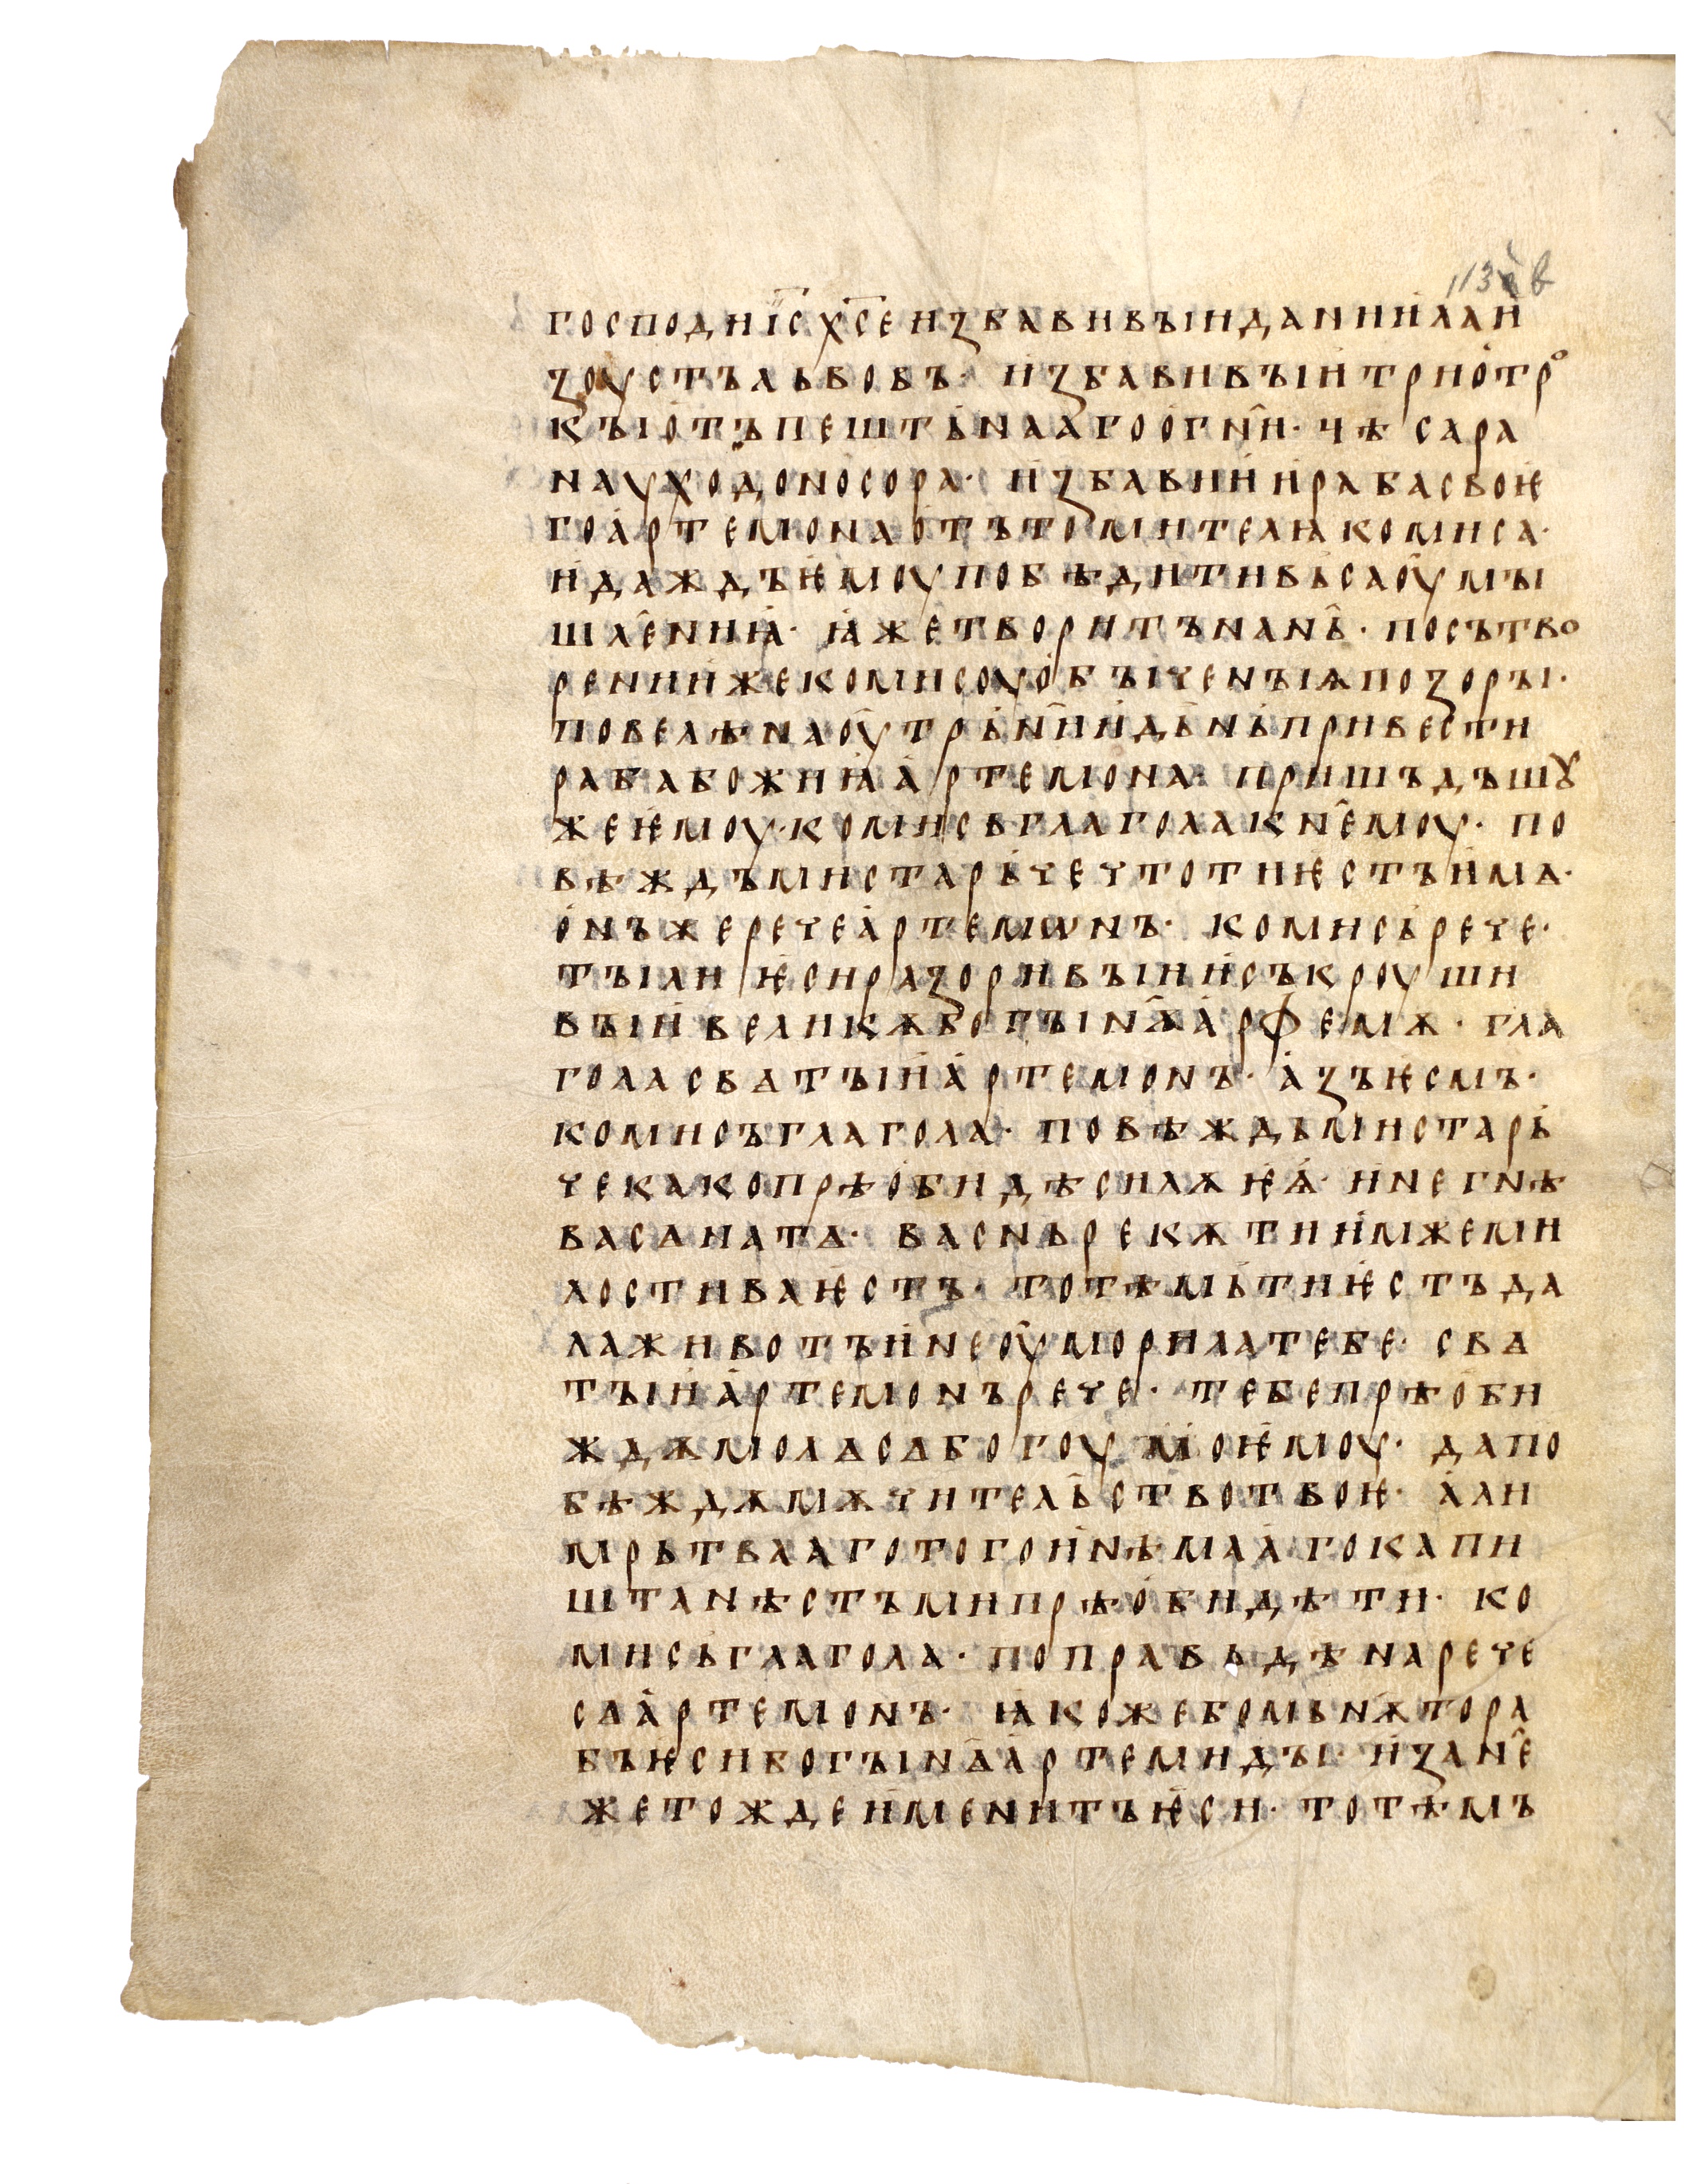 113 в
господиі҃с х҃се избавивꙑи дании̇ла и̇
зоустъ львовъ· и̇збавивꙑи̇ три о̇трᲂ
кꙑ о̇тъ пешти ѝнааго о̇гн҄и· чѣсара
науходоносора· и̇збави и̇ и̇ раба своѥ̇
го а̇ртемона о̇тъ томителꙖ комиса·
и̇ даждъ ѥ̇моу побѣдити вьса оу̇мꙑ
шл҄ениꙖ̇· ꙗ̇же творитъ на н҄ь· по сътво
рении̇ же комисоу о̇бꙑченꙑѩ позорꙑ·
повелѣ на оу̇трьн҄ии̇ дьнь привести
раба божиꙖ̇ а̇ртемона· пришъдъшꙋ
же ѥ̇моу· комисъ глагола к н҄емоу· по
вѣждъ ми старьче что ти ѥ̇стъ и̇мѧ·
о̇нъ же рече а̇ртемѡнъ· комисъ рече·
тꙑ ли ѥ̇си разоривꙑи и̇ съкроуши
вꙑи̇ великѫ богꙑн҄ѫ а̇рфемѫ· гла
гола свѧтꙑи̇ а̇ртемонъ· а̇зъ ѥ̇смъ·
комисъ глагола· повѣждь ми старь
че како прѣо̇бидѣ силѫ ѥ̇ѩ̇· и̇ не гнѣ
ва сѧ на тѧ· ва снь рекѫ ти и̇мже ми
лостива ѥ̇стъ· то тѣмь ти ѥ̇стъ да
ла животъ и̇ не оу̇морила тебе· свѧ
тꙑи̇ а̇ртемонъ рече· тебе прѣо̇би
ждѫ молѧ сѧ богоу мо̇ѥ̇моу· да по
бѣждѫ мѫчительство твоѥ̇· а̇ ли
мрьтвааго того и̇ нѣмаа̇го капи
шта нѣстъ ми прѣо̇бидѣти· ко
мисъ глагола· по правьдѣ нарече
сѧ а̇ртемонъ· ꙗ̇коже бо мьнѫ то ра
бъ ѥ̇си богꙑн҄ѧ а̇ртемидꙑ· и̇ зан҄е
же тождеи̇менитъ ѥ̇си· то тѣмъ